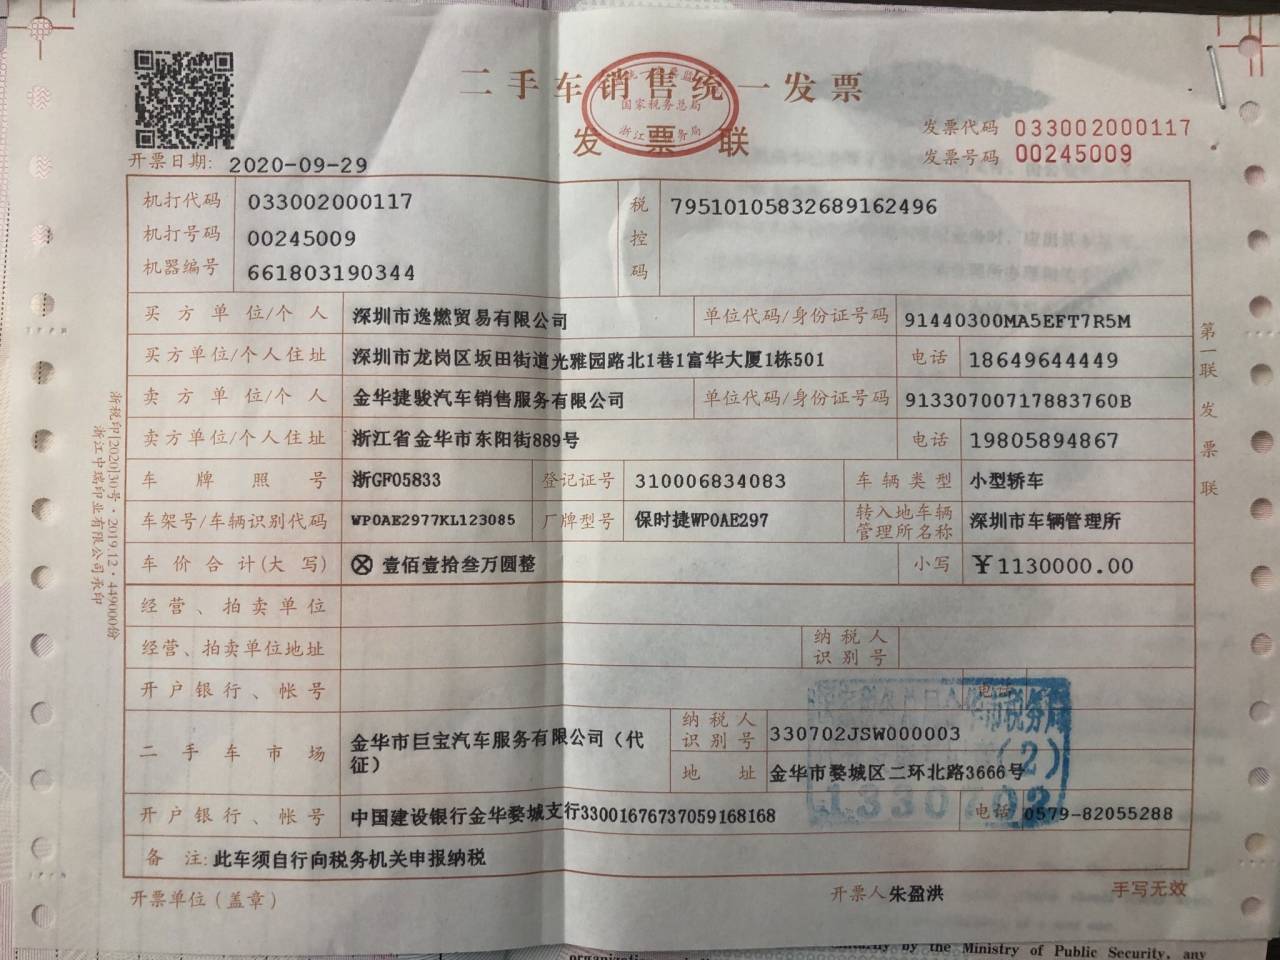 二手车销售统一发票
国家税务总局
发票联
发票代码 033002000117
发票号码 00245009
开票日期: 2020-09-29
机打代码 033002000117
机打号码 00245009
机器编号 661803190344
税控码 79510105832689162496
买方单位/个人 深圳市逸燃贸易有限公司 单位代码/身份证号码 91440300MA5EFT7R5M
买方单位/个人住址 深圳市龙岗区坂田街道光雅园路北1巷1富华大厦1栋501 电话 18649644449
卖方单位/个人 金华捷骏汽车销售服务有限公司 单位代码/身份证号码 91330700717883760B
卖方单位/个人住址 浙江省金华市东阳街889号 电话 19805894867
车牌照号 浙GF05833 登记证号 310006834083 车辆类型 小型轿车
车架号/车辆识别代码 WP0AE2977KL123085 厂牌型号 保时捷WP0AE297 转入地车辆管理所名称 深圳市车辆管理所
车价合计(大写) ⊗ 壹佰壹拾叁万圆整 小写 ¥1130000.00
经营、拍卖单位
经营、拍卖单位地址 纳税人识别号
开户银行、帐号 电话
二手车市场 金华市巨宝汽车服务有限公司（代征） 纳税人识别号 330702JSW000003
地址 金华市婺城区二环北路3666号
开户银行、帐号 中国建设银行金华婺城支行33001676737059168168 电话 0579-82055288
备注: 此车须自行向税务机关申报纳税
开票单位(盖章) 开票人 朱盈洪 手写无效
第一联 发票联
浙税印[2020]30号·2019.12·449000份
浙江中瑞印业有限公司承印
(2)
by the Ministry of Public Security, any